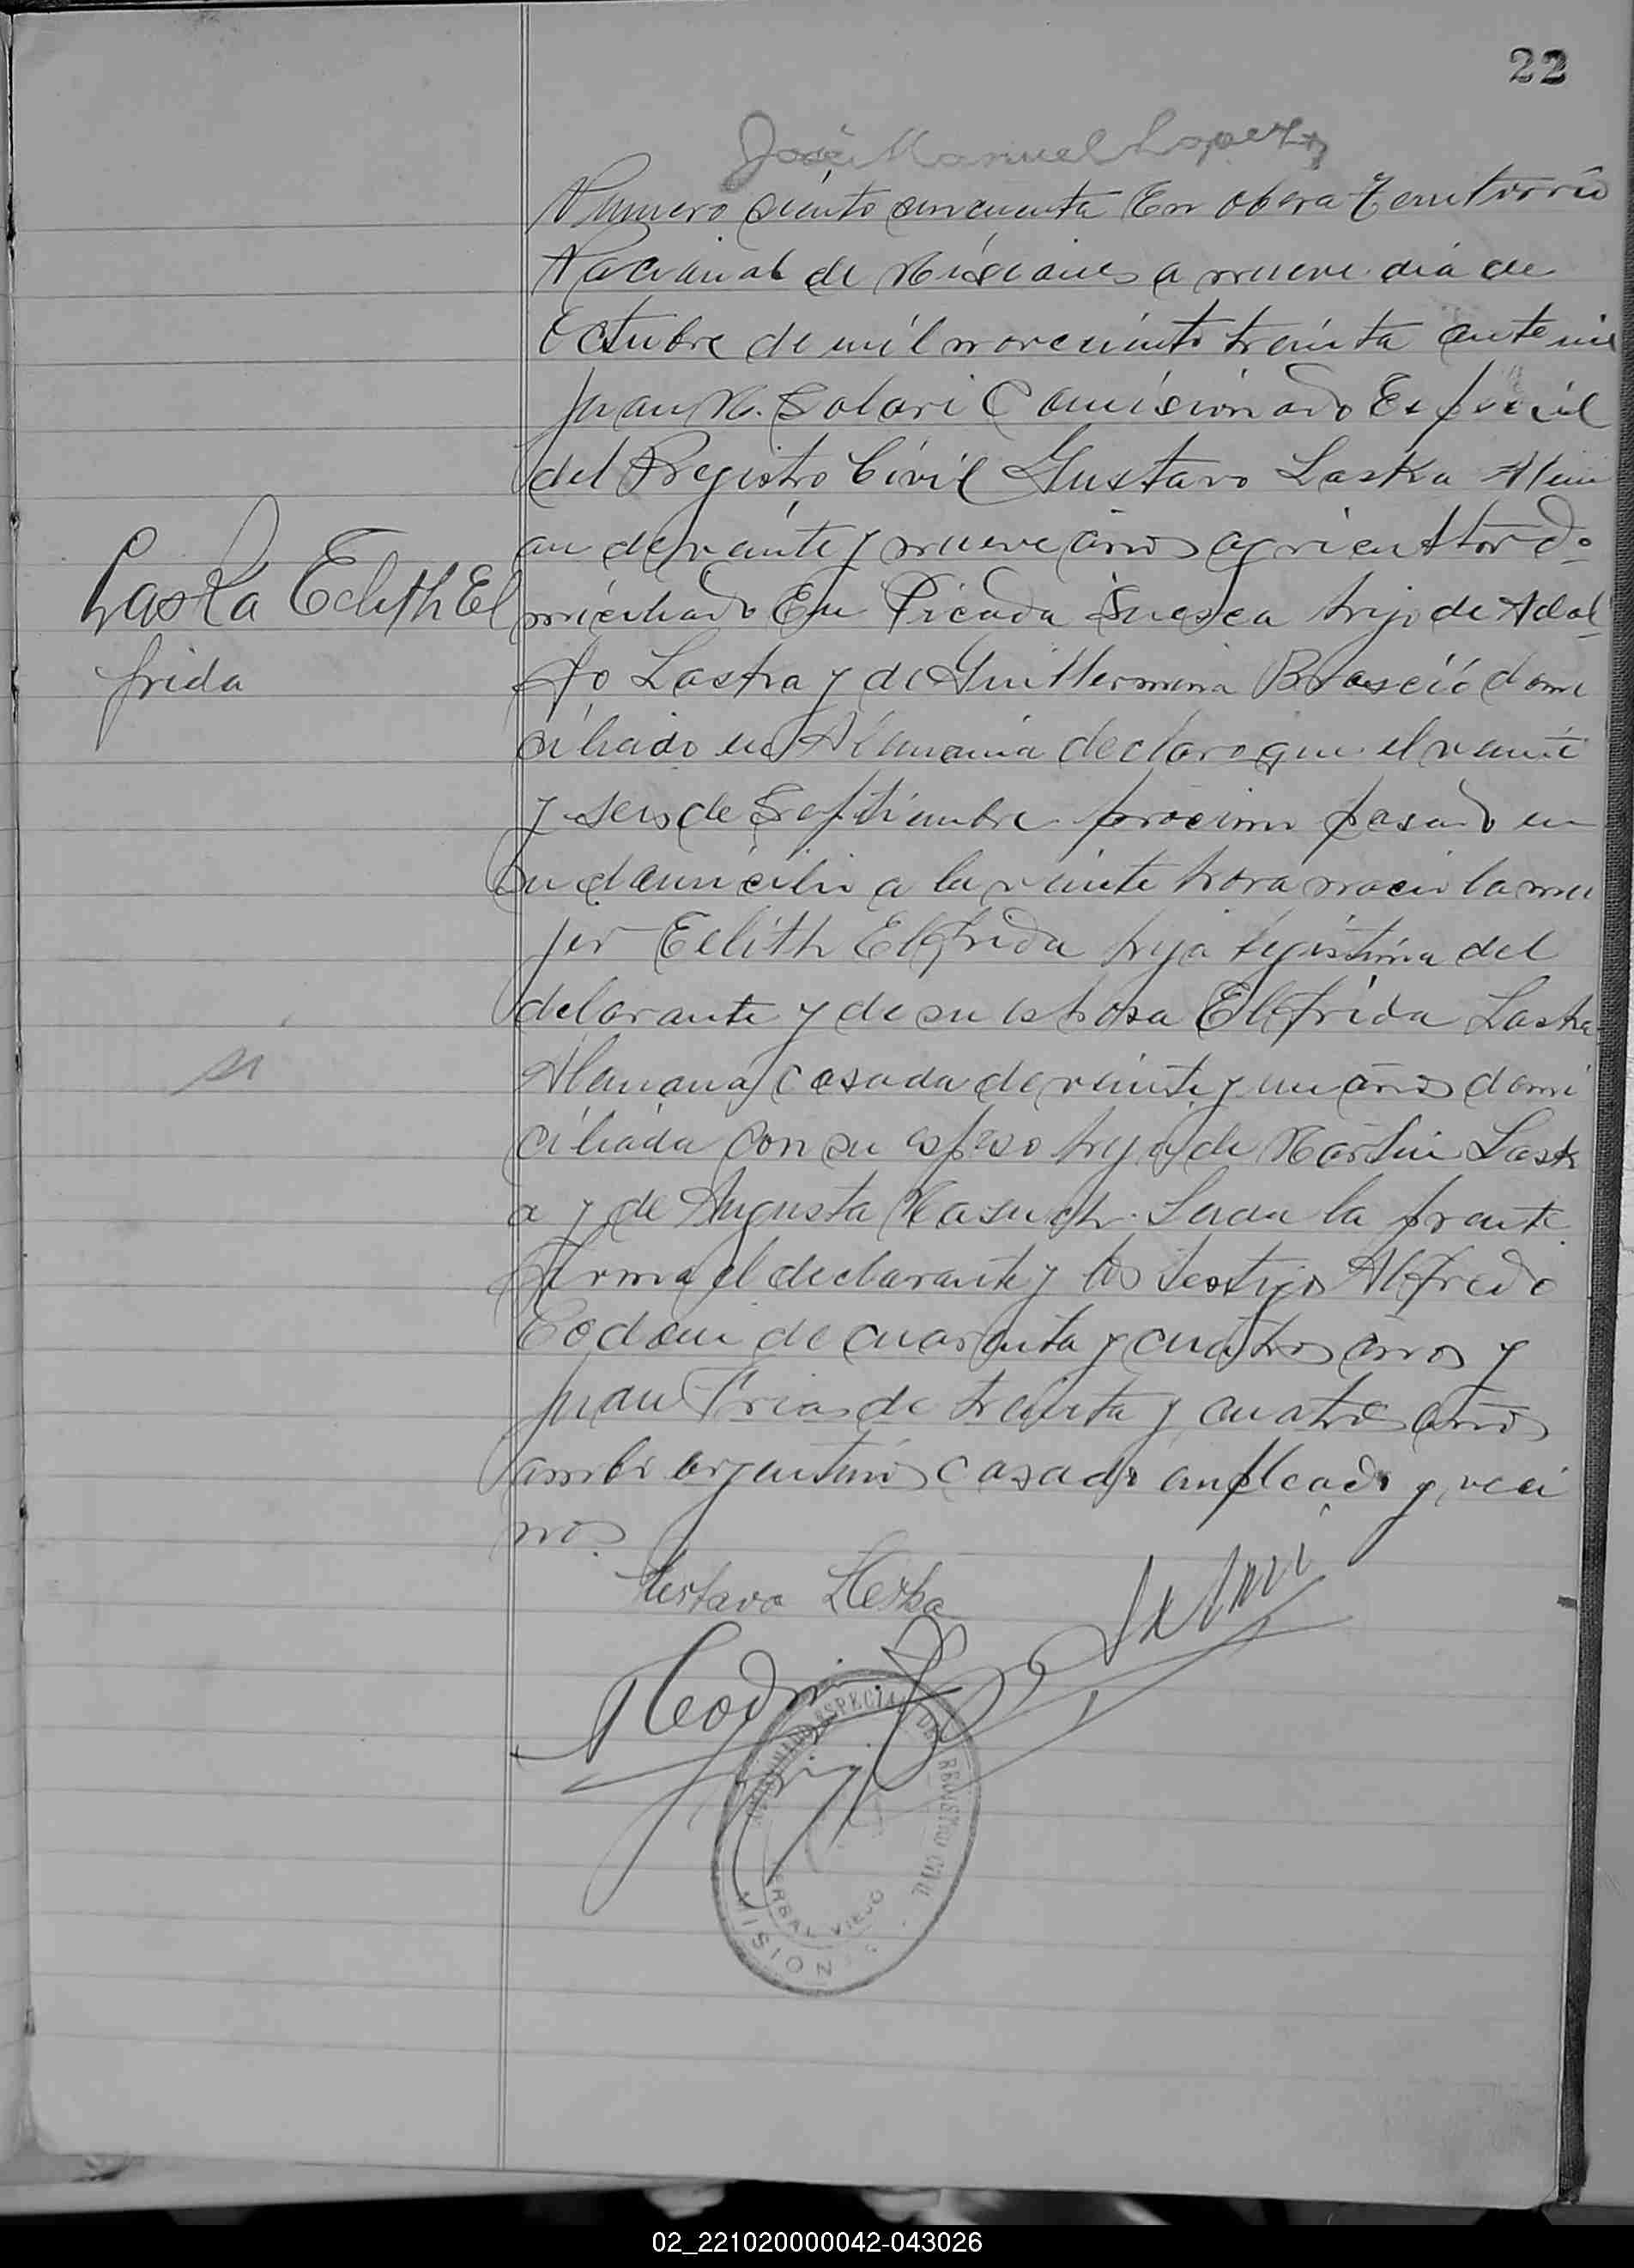 22
José Manuel Lopez
Numero siento cincuenta En obera Territorio
Nacional de Misiones a nueve dia de
Octubre de mil noveciento treinta ante mi
Juan M. Solari Comisionado Especial
del Registro Civil Gustavo Laska Alem
an de veinte y nueve años agricultor do
miciliado En Picada Suesca hijo de Adol
Laska Edith El
frida
fo Laska y de Guillermina domi
ciliado en Alemania declaro que el veinte
y seis de Septiembre proximo pasado en
su domicilio a la veinte hora nacio la mu
jer Edith Elfrida hija legistima del
delarante y de su esposa Elfrida Laska
si
Alemana casada de veinte y un años domi
ciliada con su esposo hija de Martin Lask
a y de Augusta Leida la presente
firma el declarante y los testigos Alfredo
de cuarenta y cuatro años y
Juan Frias de treinta y cuatro años
ambos argentinos casado empleado y veci
nos
Gustavo Leska
COMISIONADO ESPECIAL DEL REGISTRO CIVIL
YERBAL VIEJO
MISIONES
02_221020000042-043026